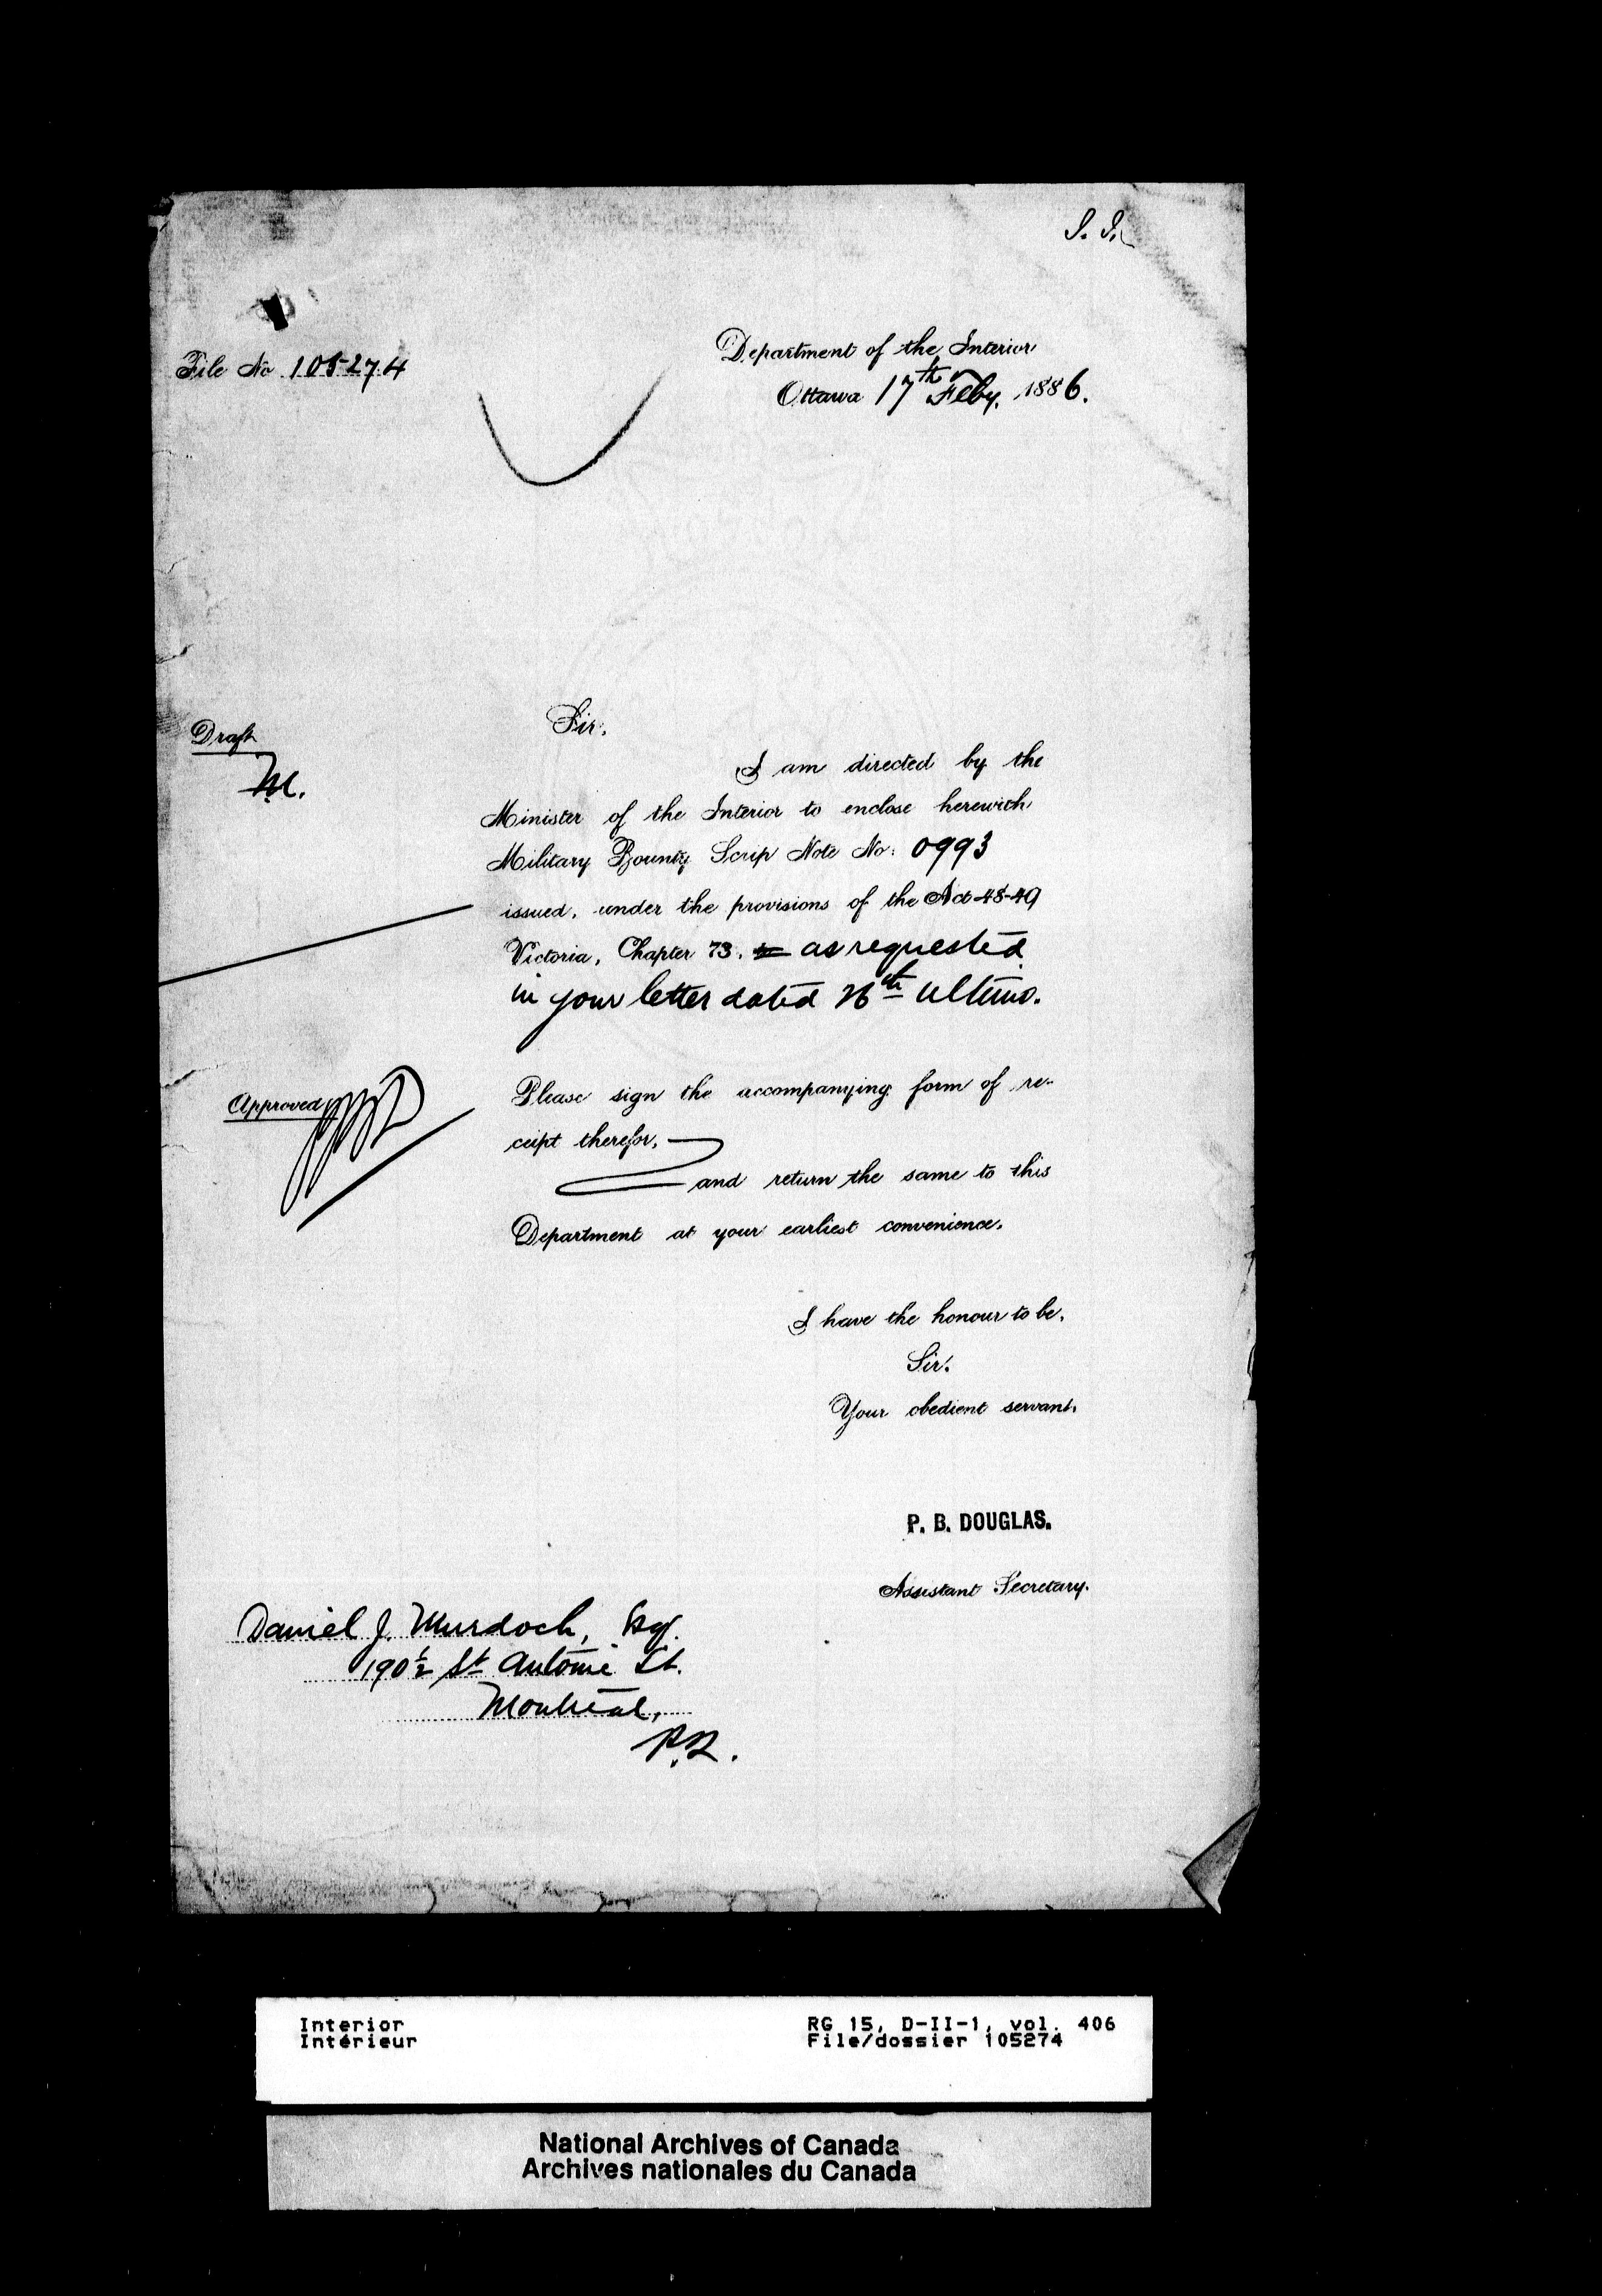 File No 105274
Department of the Interior
Ottawa 17th Feby. 1886.
Draft
M.
Sir,
I am directed by the
Minister of the Interior to enclose herewith
Military Bounty Scrip Note No. 0993
issued, under the provisions of the Act 48-49
Victoria, Chapter 73, as requested
in your letter dated 26th ultimo.
Approved
Please sign the accompanying form of re-
ceipt therefor,
and return the same to this
Department at your earliest convenience.
I have the honour to be,
Sir,
Your obedient servant,
P. B. DOUGLAS.
Assistant Secretary.
Daniel J. Murdoch, Esq.
190½ St Antoine St.
Montreal,
P.Q.
Interior
Intérieur
RG 15, D-II-1, vol. 406
File/dossier 105274
National Archives of Canada
Archives nationales du Canada